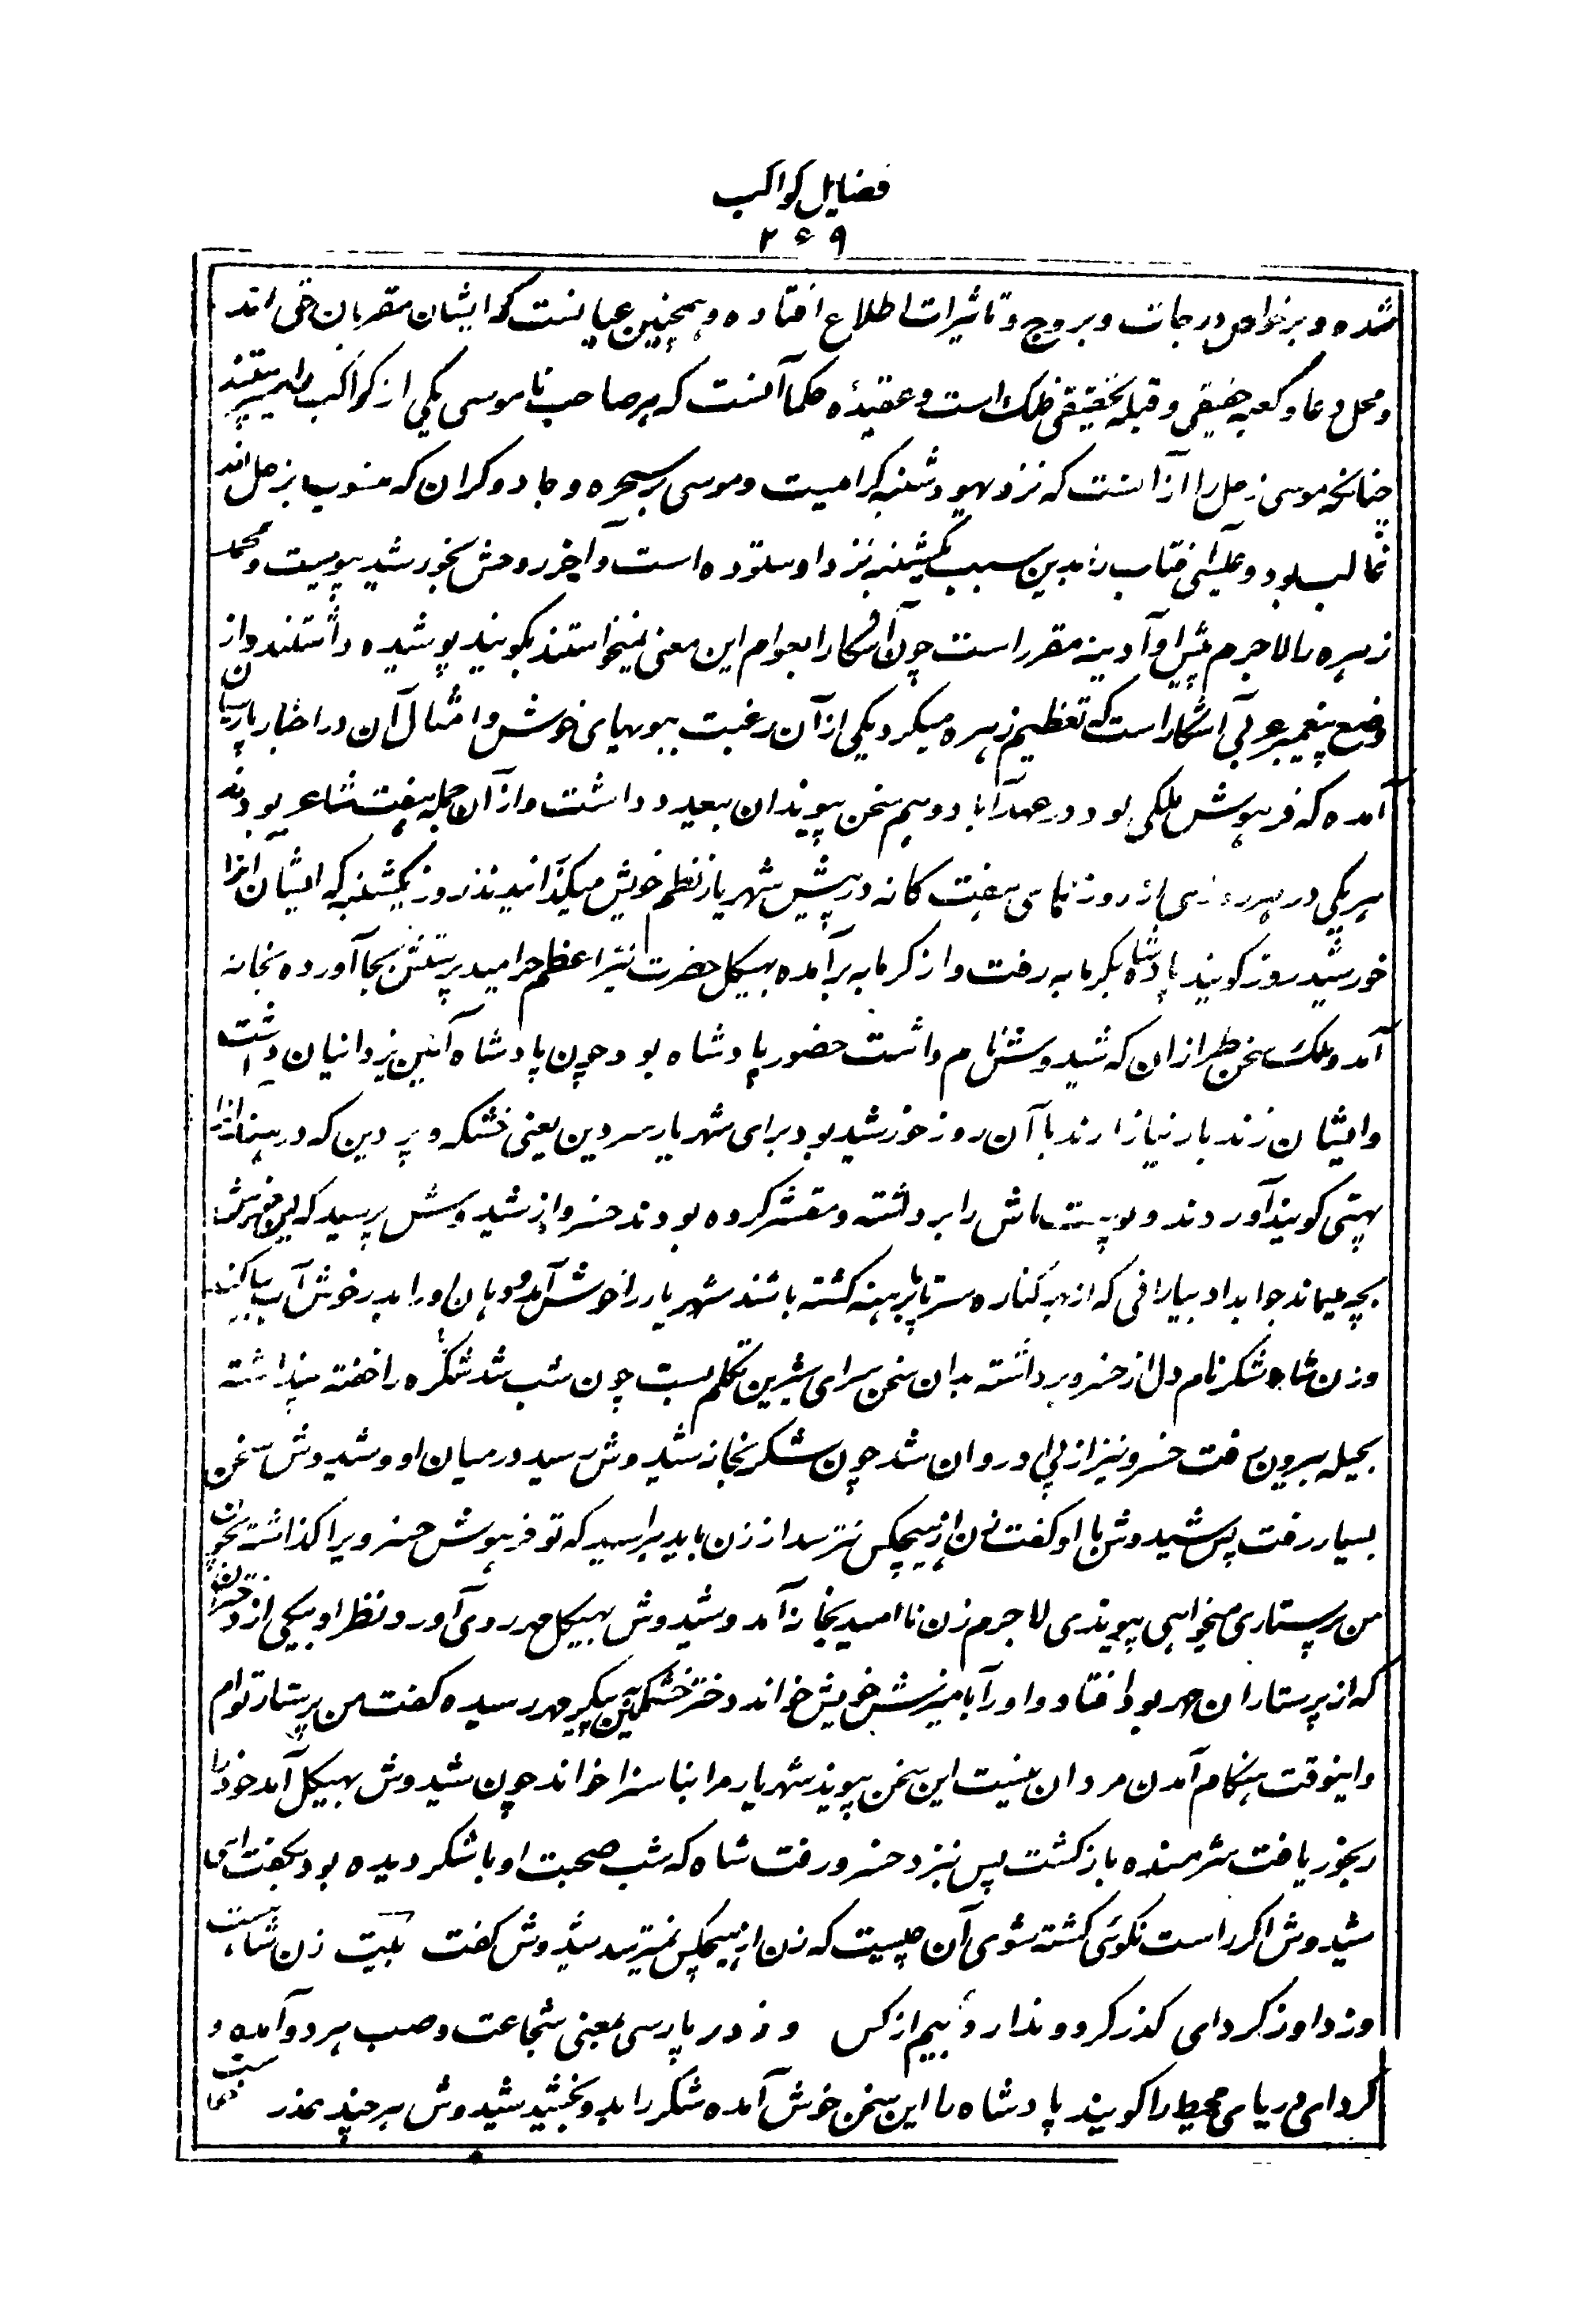 فضایل کواکب
۲۶۹
شده و برخواص درجات و بروج و تاثیرات اطلاع افتاده و همچنین عیانست که ایشان مقربان حق اند
و محل دعا و کعبه حقیقی و قبله تحقیقی فلک است و عقیده حکما آنست که هر صاحب ناموسی یکی از کواکب را میپرستیدند
چنانکه موسی زحل را ازانست که نزد یهود شنبه گرامیست و موسی بر سحره و جادوگران که منسوب بزحل اند
غالب بود و عیسی آفتاب را بدین سبب یکشنبه نزد او ستوده است و آخر روحش بخورشید پیوست و محمد
زهره را لاجرم پیش او آدینه مقرر است چون آشکارا بعوام این معنی نمیخواستند بگویند پوشیده داشتند و از
وضع پیغمبر عربی آشکار است که تعظیم زهره میکرد یکی از آن رغبت ببویهای خوش و امثال آن در اخبار پارسیان
آمده که فرهوش ملکی بود در عهد آباد و هم سخن پیوندان بیعدد داشت و از آن جمله هفت شاعر بودند
هر یکی در هر روزی از روزهای هفت گانه در پیش شهریار نظم خویش میگذرانیدند روز یکشنبه که ایشان آنرا
خورشید روز گویند پادشاه بگرمابه رفت و از گرمابه برآمده بهیکل حضرت نیر اعظم خرامید پرستش بجا آورده بخانه
آمد و ملک سخن طرازان که شیدوش نام داشت حضور پادشاه بود چون پادشاه آئین یزدانیان داشت
و ایشان زندبار نیازارند با آن روز خورشید بود برای شهریار سردین یعنی خشکه و پردین که در هند آنرا
بهتی گویند آوردند و پوست ماش را برداشته و مقشر کرده بودند خسرو از شیدوش پرسید که این
بچه میماند جوابداد بیارافی که از هر کناره سرتاپا برهنه گشته باشند شهریار را خوش آمد و دهان او را بدر خوش آب
و زن شاه شکر نام دل از خسرو برداشته بدان سخن سرای شیرین تکلم بست چون شب شد شکر شاه را خفته پنداشته
بحیله بیرون رفت خسرو نیز از پی او روان شد چون شکر بخانه شیدوش رسید درمیان او و شیدوش سخن
بسیار رفت پس شیدوش با او گفت زن از هیچکس نترسد از زن باید هراسید که تو فرهوش خسرو را گذاشته
من پرستاری میخواهی پیوندی لاجرم زن ناامید بخانه آمد و شیدوش بهیکل مهر روی آورد و نظر او بیکی از دختران
که از پرستاران مهر بود افتاد و او را بآمیزش خویش خواند دختر خشمگین پیکر مهر رسیده گفت من پرستار توام
و اینوقت هنگام آمدن مردان نیست این سخن پیوند شهریار مرا بناسزا خواند چون شیدوش بهیکل آمد خود را
رنجور یافت شرمنده بازگشت پس نزد خسرو رفت شاه که شب صحبت او با شکر دیده بود بگفت ای
شیدوش اگر راست نگوئی کشته شوی آن چیست که زن از هیچکس نمیترسد شیدوش گفت بیت زن شاهست
وزد او زگردای گذر گرد و ندارد بیم از کس و زد در پارسی معنی شجاعت و صب هر دو آمده و
گردای دریای محیط را گویند پادشاه را این سخن خوش آمده شکر را بدو بخشید شیدوش هر چند بعذر